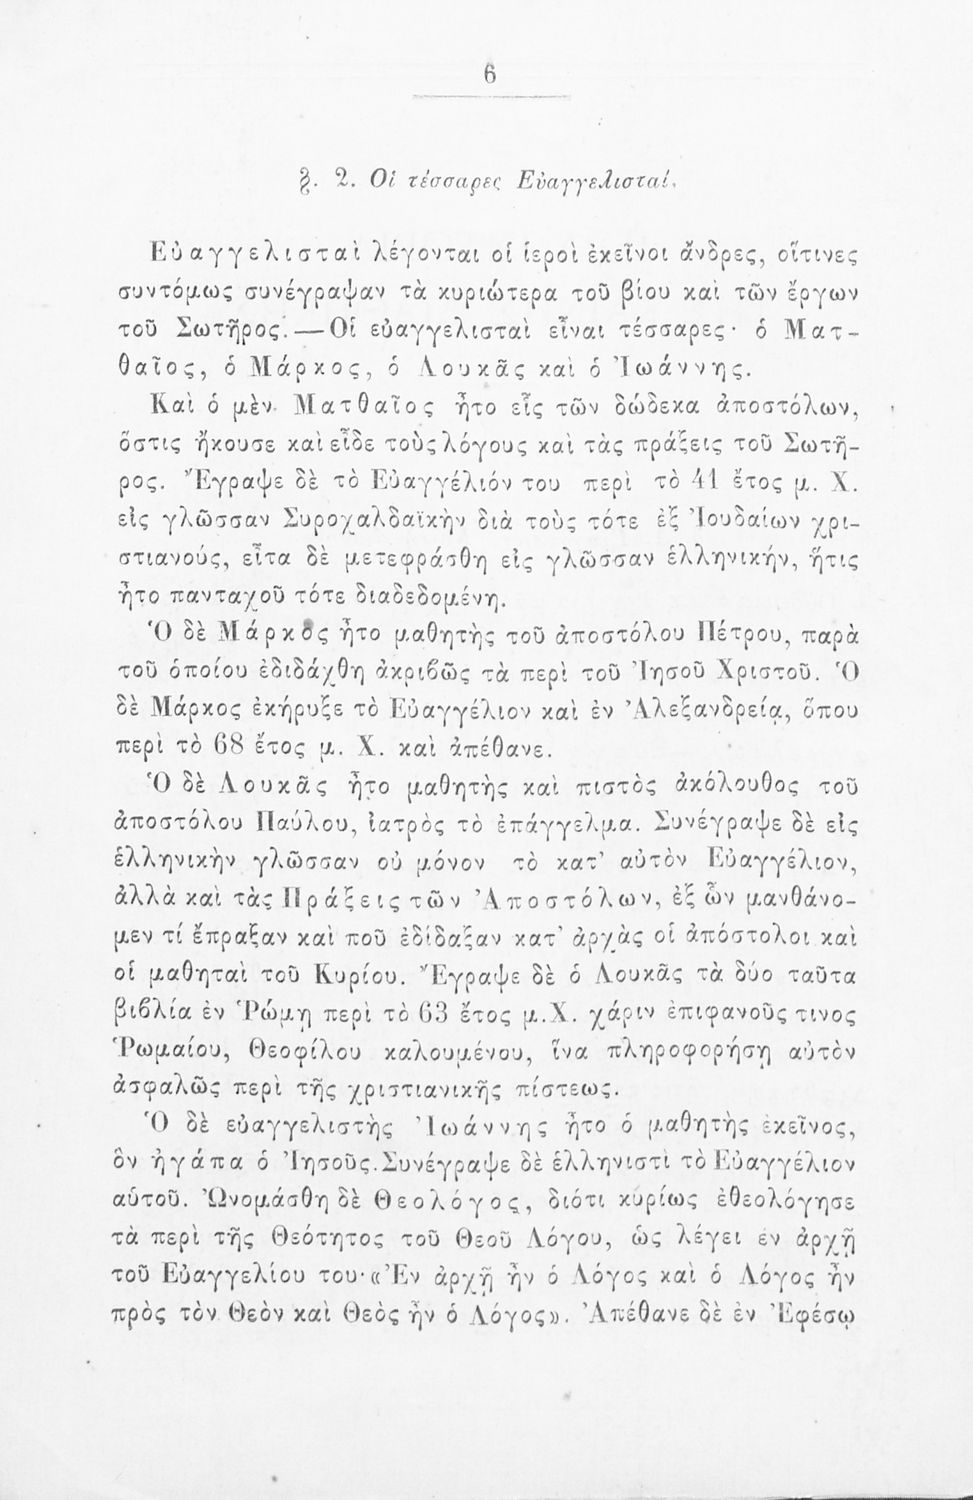 6
§. 2. Οἱ τέσσαρες Εὐαγγελισταί.
Εὐαγγελισταὶ λέγονται οἱ ἱεροὶ ἐκεῖνοι ἄνδρες, οἵτινες
συντόμως συνέγραψαν τὰ κυριώτερα τοῦ βίου καὶ τῶν ἔργων
τοῦ Σωτῆρος.—Οἱ εὐαγγελισταὶ εἶναι τέσσαρες· ὁ Ματ-
θαῖος, ὁ Μάρκος, ὁ Λουκᾶς καὶ ὁ Ἰωάννης.
Καὶ ὁ μὲν Ματθαῖος ἦτο εἷς τῶν δώδεκα ἀποστόλων,
ὅστις ἤκουσε καὶ εἶδε τοὺς λόγους καὶ τὰς πράξεις τοῦ Σωτῆ-
ρος. Ἔγραψε δὲ τὸ Εὐαγγέλιόν του περὶ τὸ 41 ἔτος μ. Χ.
εἰς γλῶσσαν Συροχαλδαϊκὴν διὰ τοὺς τότε ἐξ Ἰουδαίων χρι-
στιανούς, εἶτα δὲ μετεφράσθη εἰς γλῶσσαν ἑλληνικήν, ἥτις
ἦτο πανταχοῦ τότε διαδεδομένη.
Ὁ δὲ Μάρκος ἦτο μαθητὴς τοῦ ἀποστόλου Πέτρου, παρὰ
τοῦ ὁποίου ἐδιδάχθη ἀκριβῶς τὰ περὶ τοῦ Ἰησοῦ Χριστοῦ. Ὁ
δὲ Μάρκος ἐκήρυξε τὸ Εὐαγγέλιον καὶ ἐν Ἀλεξανδρείᾳ, ὅπου
περὶ τὸ 68 ἔτος μ. Χ. καὶ ἀπέθανε.
Ὁ δὲ Λουκᾶς ἦτο μαθητὴς καὶ πιστὸς ἀκόλουθος τοῦ
ἀποστόλου Παύλου, ἰατρὸς τὸ ἐπάγγελμα. Συνέγραψε δὲ εἰς
ἑλληνικὴν γλῶσσαν οὐ μόνον τὸ κατ' αὐτὸν Εὐαγγέλιον,
ἀλλὰ καὶ τὰς Πράξεις τῶν Ἀποστόλων, ἐξ ὧν μανθάνο-
μεν τί ἔπραξαν καὶ ποῦ ἐδίδαξαν κατ' ἀρχὰς οἱ ἀπόστολοι καὶ
οἱ μαθηταὶ τοῦ Κυρίου. Ἔγραψε δὲ ὁ Λουκᾶς τὰ δύο ταῦτα
βιβλία ἐν Ῥώμῃ περὶ τὸ 63 ἔτος μ.Χ. χάριν ἐπιφανοῦς τινος
Ῥωμαίου, Θεοφίλου καλουμένου, ἵνα πληροφορήσῃ αὐτὸν
ἀσφαλῶς περὶ τῆς χριστιανικῆς πίστεως.
Ὁ δὲ εὐαγγελιστὴς Ἰωάννης ἦτο ὁ μαθητὴς ἐκεῖνος,
ὃν ἠγάπα ὁ Ἰησοῦς. Συνέγραψε δὲ ἑλληνιστὶ τὸ Εὐαγγέλιον
αὑτοῦ. Ὠνομάσθη δὲ Θεολόγος, διότι κυρίως ἐθεολόγησε
τὰ περὶ τῆς Θεότητος τοῦ Θεοῦ Λόγου, ὡς λέγει ἐν ἀρχῇ
τοῦ Εὐαγγελίου του· «Ἐν ἀρχῇ ἦν ὁ Λόγος καὶ ὁ Λόγος ἦν
πρὸς τὸν Θεὸν καὶ Θεὸς ἦν ὁ Λόγος». Ἀπέθανε δὲ ἐν Ἐφέσῳ